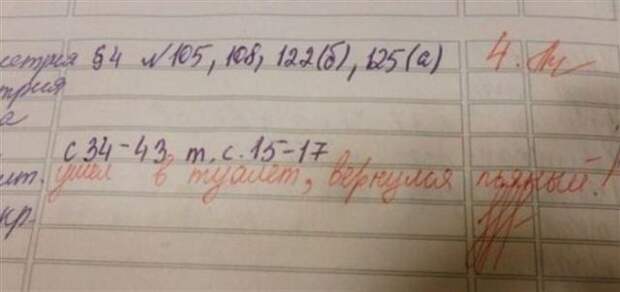 етрия §4 №105, 108, 122(б), 125(а) 4.
трия
а
с 34-43 т. с. 15-17
ит. ушел в туалет, вернулся пьяный!
кр.